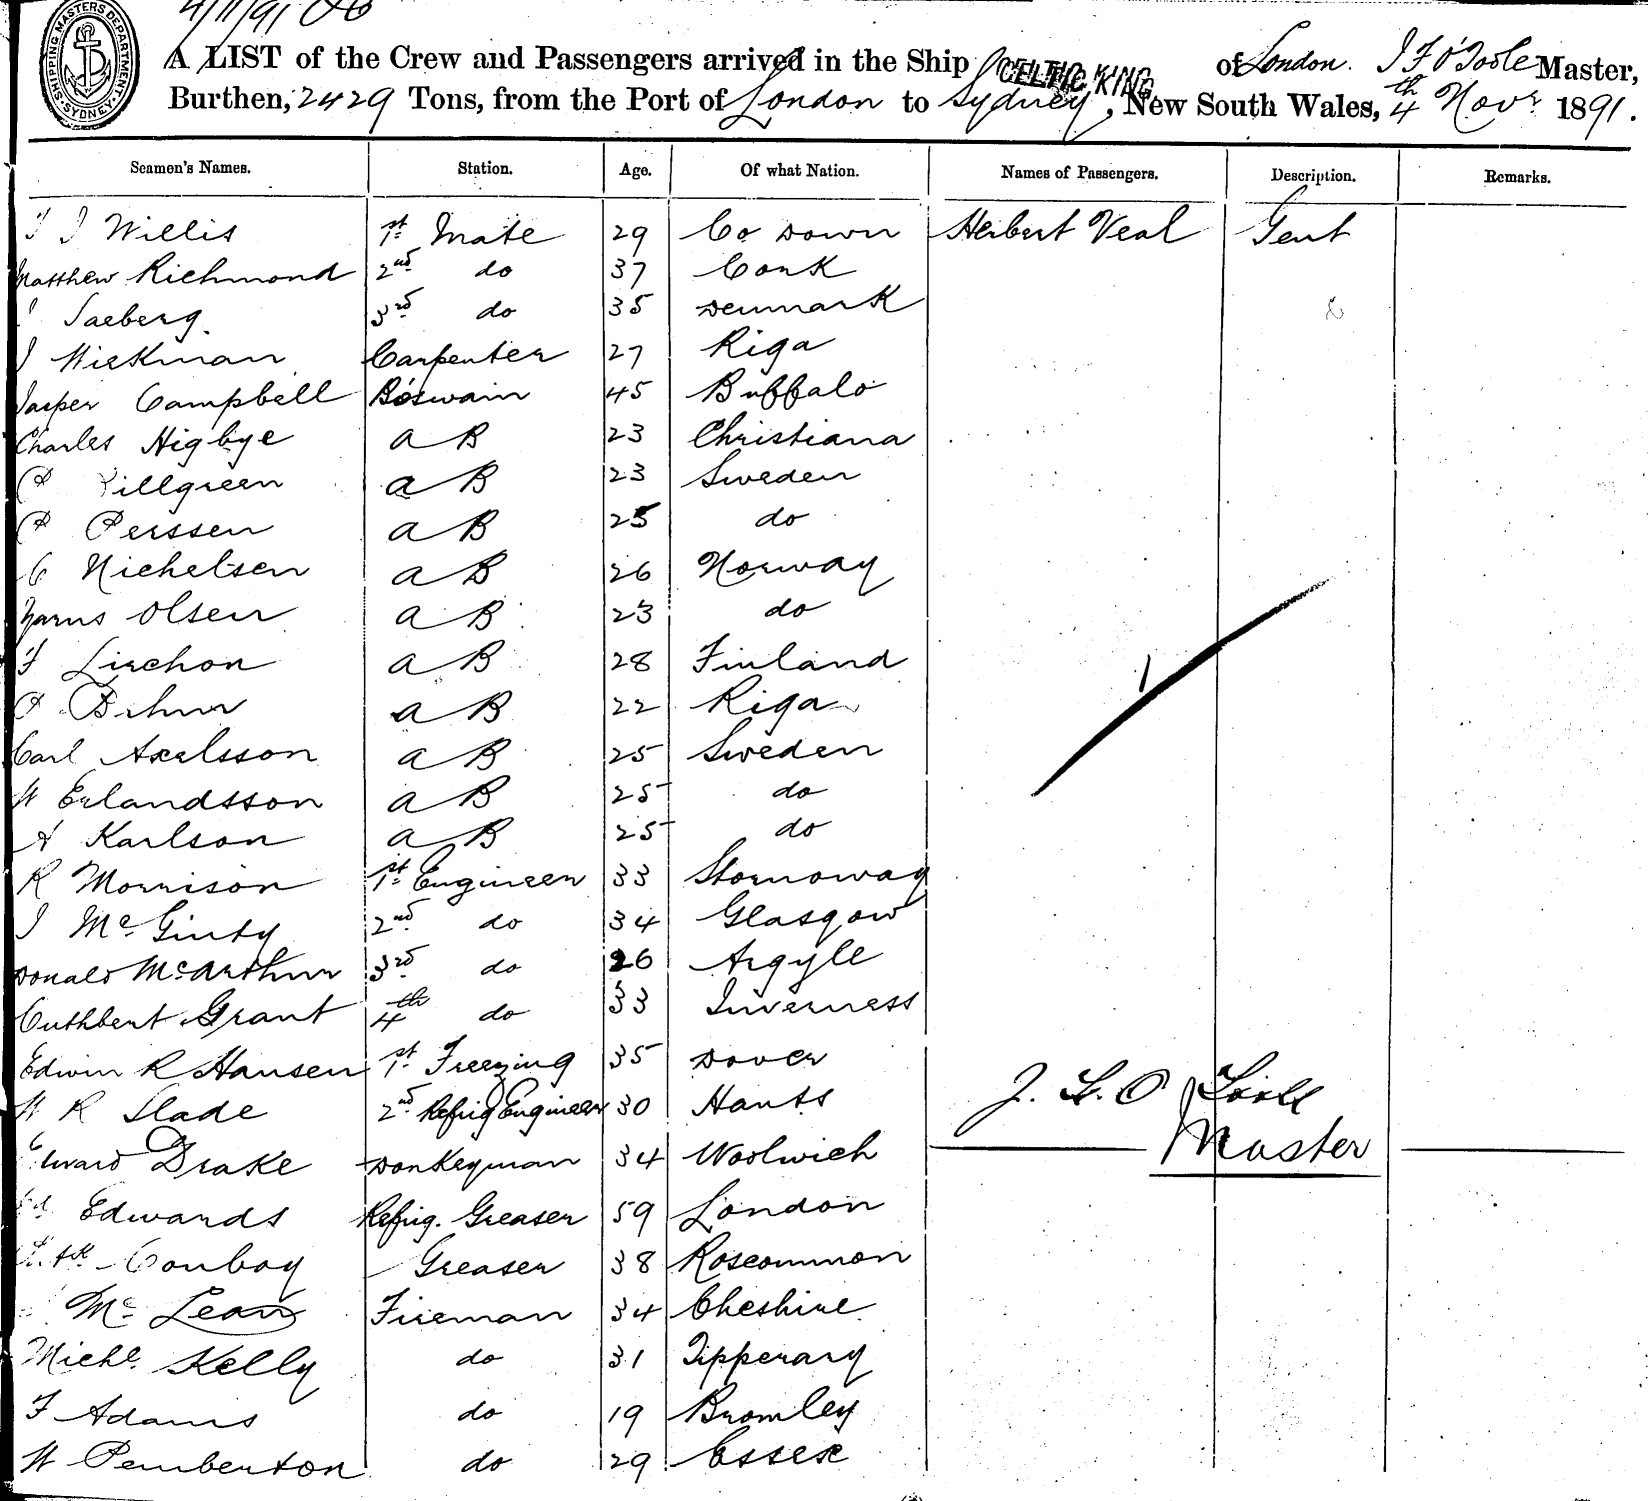 4/11/91
SHIPPING MASTERS DEPARTMENT. SYDNEY
A LIST of the Crew and Passengers arrived in the Ship CELTIC KING of London. J F O'Toole Master,
Burthen, 2429 Tons, from the Port of London to Sydney, New South Wales, 4th Novr 1891.
Seamen's Names. Station. Age. Of what Nation. Names of Passengers. Description. Remarks.
J Willis 1st Mate 29 Co Down Herbert Veal Gent
Matthew Richmond 2nd do 37 Cork
Saeberg. 3rd do 35 Denmark
J Wickman Carpenter 27 Riga
Jasper Campbell Bo'swain 45 Buffalo
Charles Higbye A B 23 Christiana
P illgreen A B 23 Sweden
P Perssen A B 25 do
C Nichelsen A B 26 Norway
Olsen A B 23 do
F Lirchon A B 28 Finland
A B 22 Riga
Carl Axelsson A B 25 Sweden
W Erlandsson A B 25 do
A Karlson A B 25 do
R Morrison 1st Engineer 33 Stornoway
J McGinty 2nd do 34 Glasgow
Donald McArthur 3rd do 26 Argyle
Cuthbert Grant 4th do 33 Inverness
Edwin R Hansen 1st Freezing 35 Dover
W R Slade 2nd Refrig Engineer 30 Hants
Edward Drake Donkeyman 34 Woolwich
Edwards Refrig. Greaser 59 London
Conboy Greaser 38 Roscommon
McLean Fireman 34 Cheshire
Michl. Kelly do 31 Tipperary
F Adams do 19 Bromley
W Pemberton do 29 Essex
J. F. O'Toole
Master